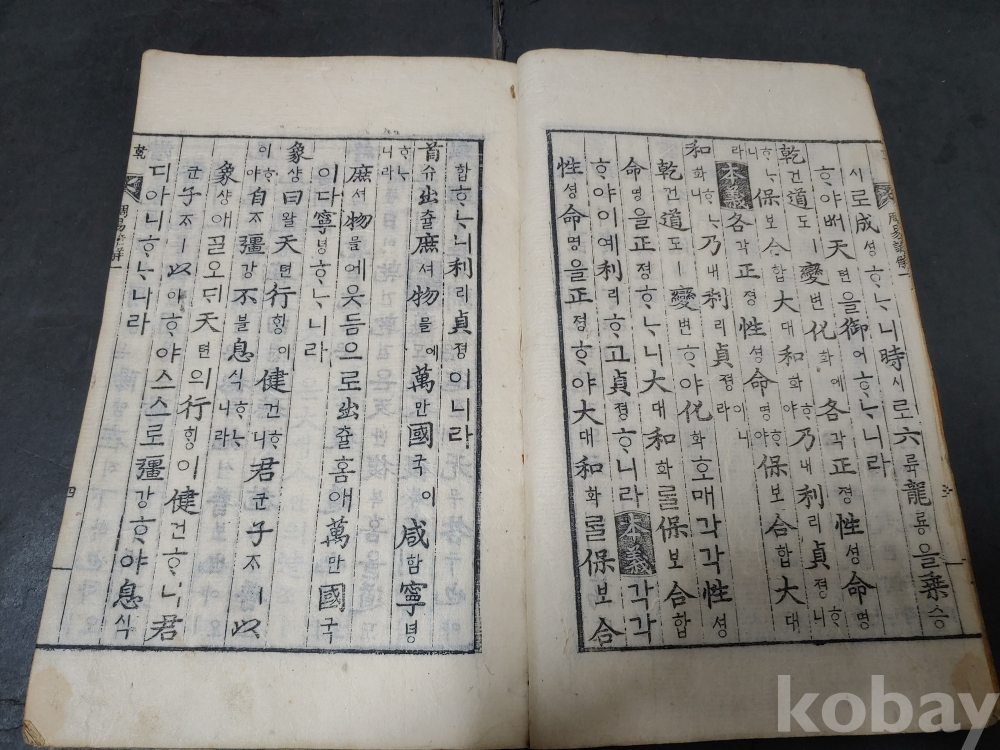 시로成셩ᄒᆞᄂᆞ니時시로六륙龍룡을乘승
ᄒᆞ야ᄡᅥ天텬을御어ᄒᆞᄂᆞ니라
乾건道도ㅣ變변化화애各각正졍性셩命명
ᄒᆞᄂᆞ니保보合합大대和화ᄒᆞ야乃내利리貞졍ᄒᆞ니라
乾건道도ㅣ變변ᄒᆞ야化화호매각각性셩
命명을正졍ᄒᆞᄂᆞ니大대和화ᄅᆞᆯ保보合합
ᄒᆞ야이예利리ᄒᆞ고貞졍ᄒᆞ니라本義각각
性셩命명을正졍ᄒᆞ야大대和화ᄅᆞᆯ保보合
합ᄒᆞᄂᆞ니利리貞졍이니라
首슈出츌庶셔物믈에萬만國국이咸함寧녕
ᄒᆞᄂᆞ니라
庶셔物믈에웃듬으로出츌홈애萬만國국
이다寧녕ᄒᆞᄂᆞ니라
象샹曰왈天텬行ᄒᆡᆼ이健건ᄒᆞ니君군子ᄌᆞㅣ以
이ᄒᆞ야自ᄌᆞ彊강不블息식ᄒᆞᄂᆞ니라
象샹애ᄀᆞᆯ오ᄃᆡ天텬의行ᄒᆡᆼ이健건ᄒᆞ니君
군子ᄌᆞㅣ以이ᄒᆞ야스스로彊강ᄒᆞ야息식
디아니ᄒᆞᄂᆞ니라
乾
四
kobay